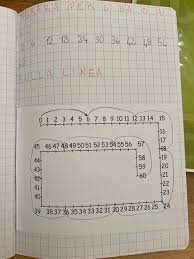 PER
6 12 18 24 30 36 42 48 54
SULLA LINEA
0 1 2 3 4 5 6 7 8 9 10 11 12 13 14 15
16
17
18
19
20
21
22
23
45 46 47 48 49 50 51 52 53 54 55 56 57
44 58
43 59
42 60
41
40
39 38 37 36 35 34 33 32 31 30 29 28 27 26 25 24